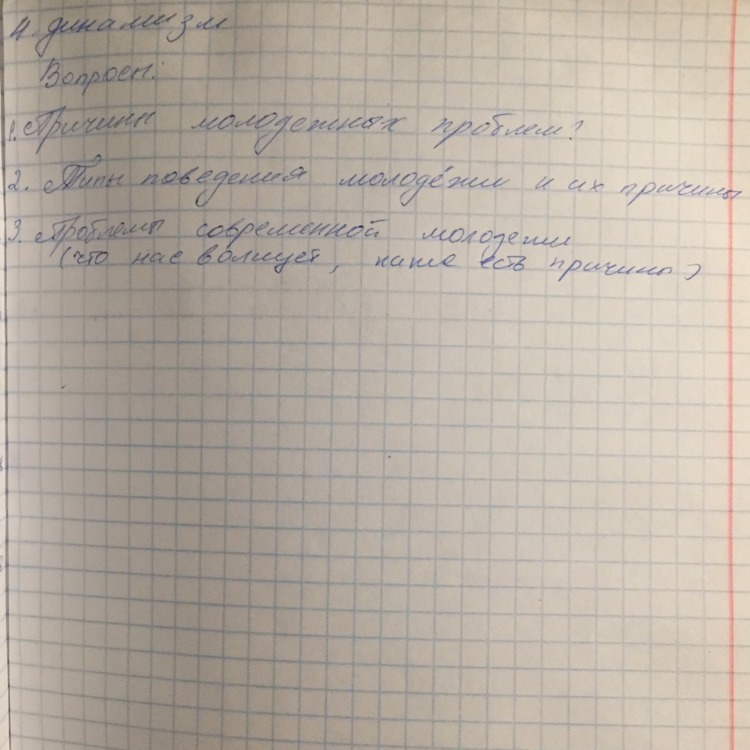 4. динамизм
Вопросы:
1. Причины молодежных проблем?
2. Типы поведения молодёжи и их причины
3. Проблемы современной молодежи
(что нас волнует, какие есть причины)